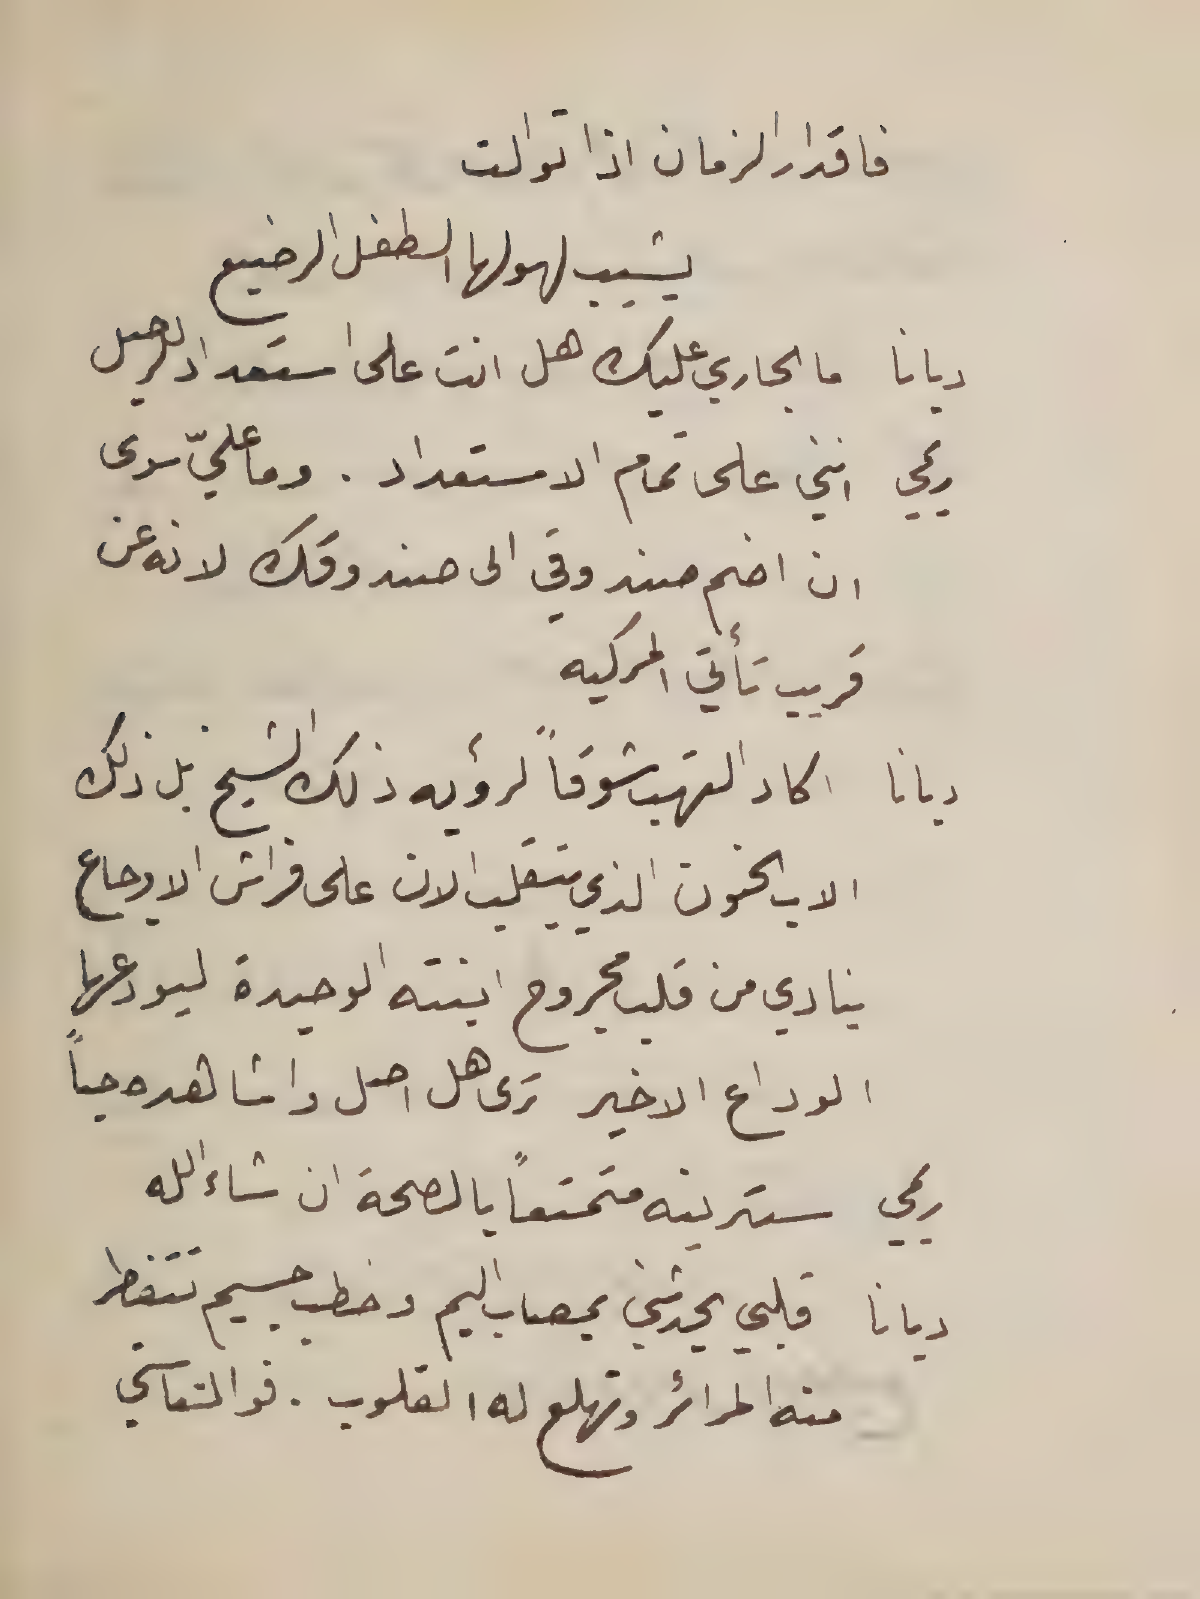 فاقدار الزمان اذا توالت
يشيب لهولها الطفل الرضيع
ديانا ما الجاري عليك هل انت على استعداد للرحيل
ريمي انني على تمام الاستعداد . وما عليّ سوى
ان اضم صندوقي الى صندوقك لانه عن
قريب تأتي المركبه
ديانا اكاد التهب شوقاً لرؤيه ذلك الشيخ بل ذلك
الاب الحنون الذي يتقلب الان على فراش الاوجاع
ينادي من قلب مجروح ابنته الوحيدة ليودعها
الوداع الاخير تَرى هل اصل واشاهده حياً
ريمي سترينه متمتعاً بالصحة ان شاء الله
ديانا قلبي يحدثني بمصاب اليم وخطب جسيم تتفطر
منه المرائر وتهلع له القلوب . فوا لتعاستي